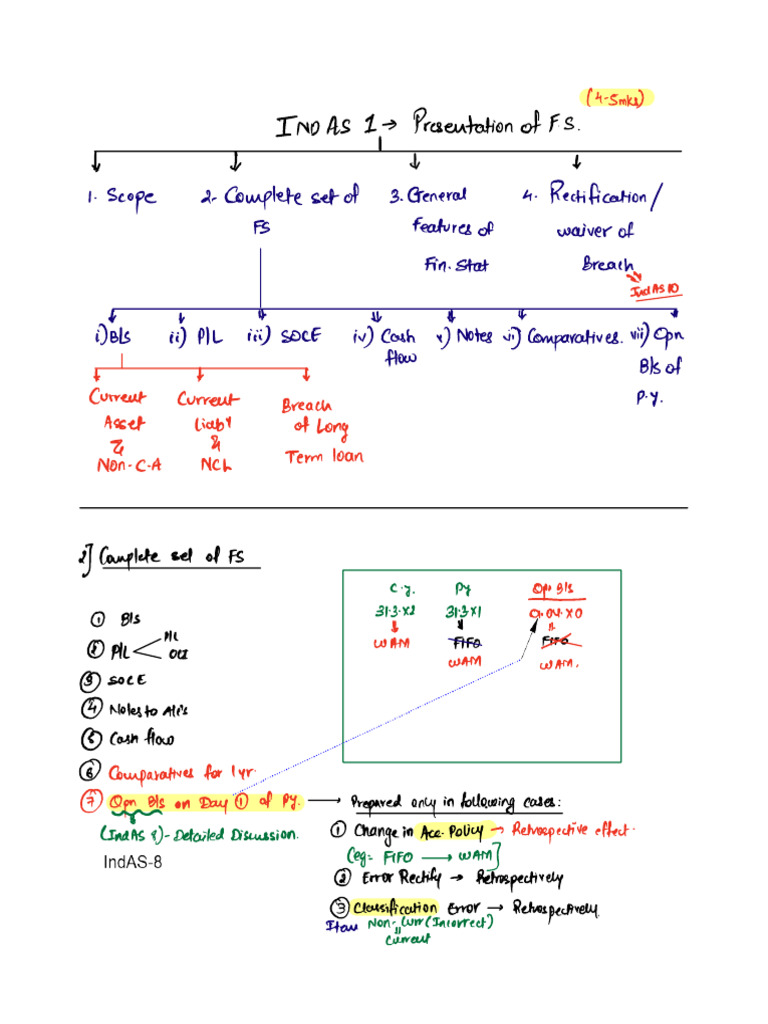 (4-5mks)
IND AS 1 → Presentation of F.S.
1. Scope
2- Complete set of
FS
3. General
features of
Fin. Stat
4. Rectification/
waiver of
Breach
Ind AS 10
i) B/s
ii) P/L
iii) SOCE
iv) Cash
flow
v) Notes
vi) Comparatives.
vii) Opn
B/s of
p.y.
Current
Asset
&
Non-C-A
Current
Liabʸ
&
NCL
Breach
of Long
Term loan
2] Complete set of FS
① B/s
② P/L < P/L
OCI
③ SOCE
④ Notes to A/c's
⑤ Cash flow
⑥ Comparatives for 1 yr.
⑦ Opn B/s on Day ① of Py.
(Ind AS 8)- Detailed Discussion.
IndAS-8
C.y. Py Op. B/s
31.3.X2 31.3.X1 01.04.X0
WAM FIFO FIFO
WAM WAM.
→ Prepared only in following cases:
① Change in Acc. Policy → Retrospective effect.
(eg= FIFO → WAM)
② Error Rectify → Retrospectively
③ Classification Error → Retrospectively
Item Non-Curr (Incorrect)
Current